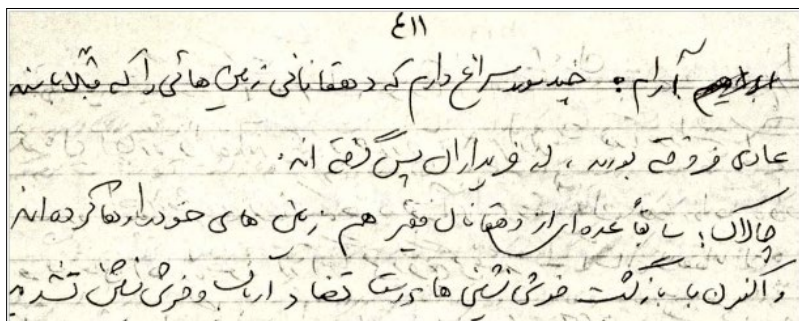 ٤١١
آرام: چند مورد سراغ دارم که دهقانانی زمین هائی را که قبلا با سند
عادی فروخته بودند، از خریداران پس گرفته اند.
چالاک: سابقاً عده ای از دهقانان فقیر هم زمین های خود را رها کرده اند
و اکنون با بازگشت خوش نشین ها بروستا تضاد اربابان و خوش نشین تشدید